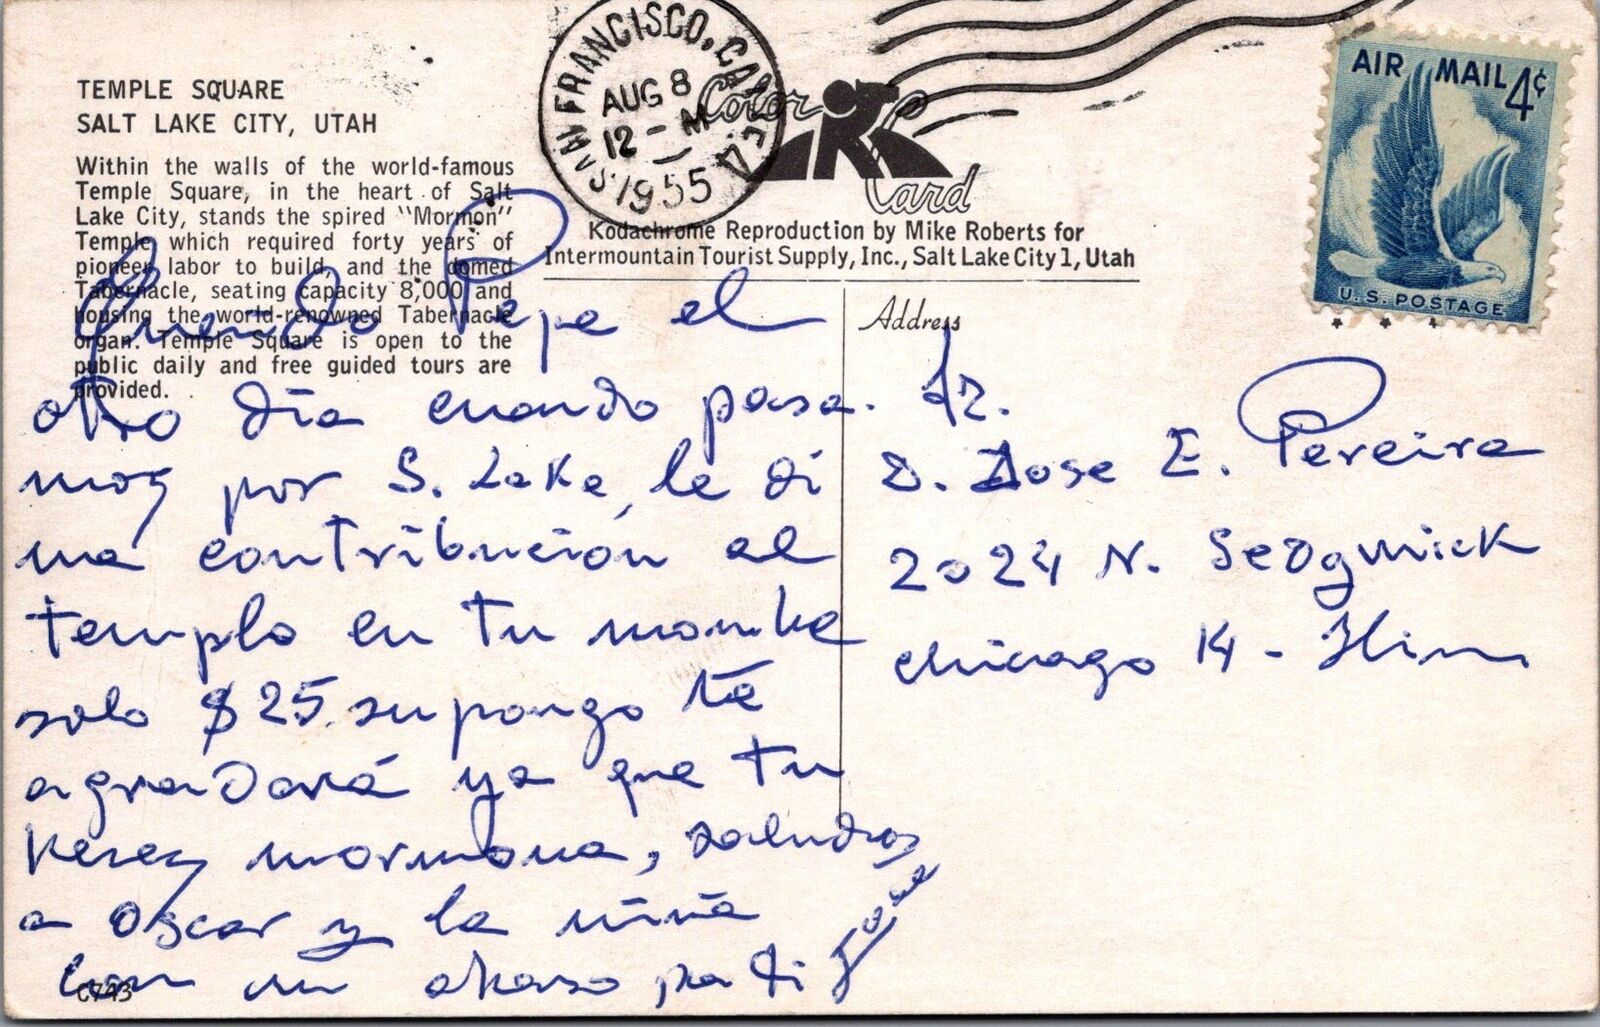 TEMPLE SQUARE
SALT LAKE CITY, UTAH
Within the walls of the world-famous
Temple Square, in the heart of Salt
Lake City, stands the spired "Mormon"
Temple which required forty years of
pioneer labor to build, and the domed
Tabernacle, seating capacity 8,000 and
housing the world-renowned Tabernacle
organ. Temple Square is open to the
public daily and free guided tours are
provided.
SAN FRANCISCO, CALIF.
AUG 8
12 - M
1955
Color
Card
Kodachrome Reproduction by Mike Roberts for
Intermountain Tourist Supply, Inc., Salt Lake City 1, Utah
AIR MAIL 4¢
U.S. POSTAGE
Querido Pepe el
otro día cuando pasa.
mos por S. Lake, le di
una contribución al
templo en tu nombre
solo $25. supongo te
agradará ya que tu
eres mormona, saludos
a Oscar y la niña
con un abrazo pa ti
José
Address
Sr.
D. Jose E. Pereira
2024 N. Sedgwick
Chicago 14 - Illin
C743